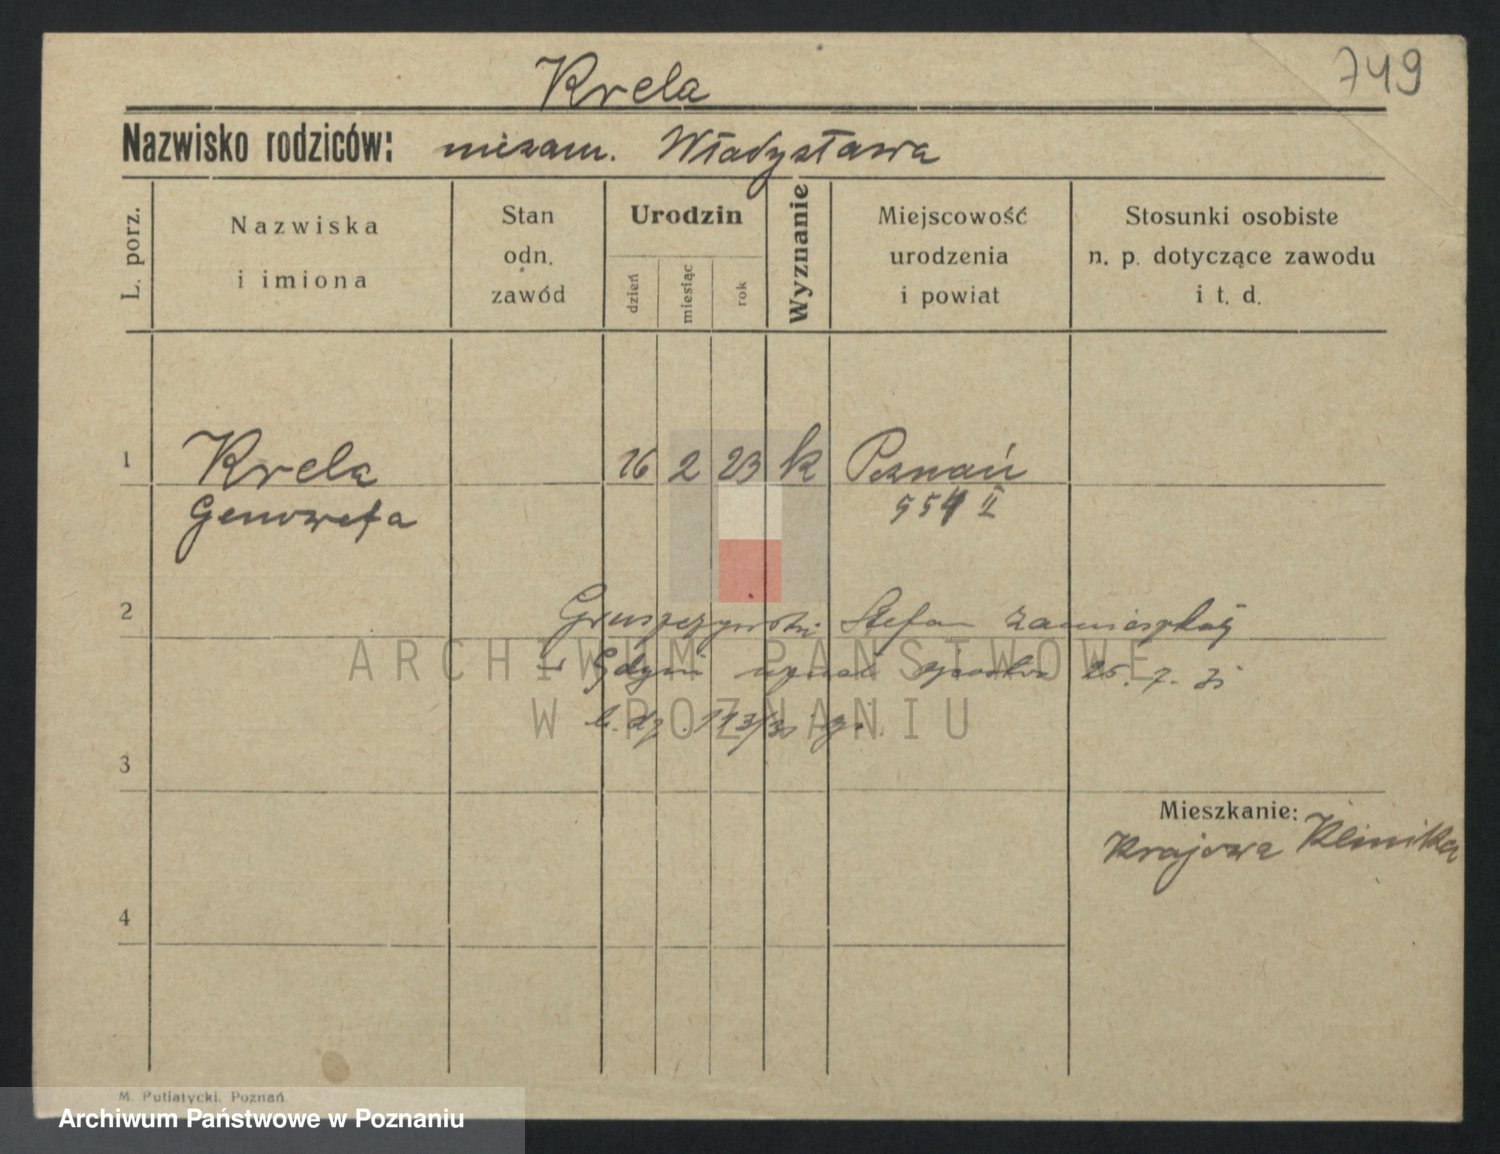 749
Krela
Nazwisko rodziców: niezam. Władysława
L. porz.
Nazwiska
i imiona
Stan
odn.
zawód
Urodzin
dzień
miesiąc
rok
Wyznanie
Miejscowość
urodzenia
i powiat
Stosunki osobiste
n. p. dotyczące zawodu
i t. d.
1 Krela 16 2 23 k Poznań
Genowefa 554 II
2
Stefan zamieszkały
Gdyni uznał 25. 7.
l. dz. 113/31
3
Mieszkanie:
Krajowa Klinika
4
ARCHIWUM PAŃSTWOWE
W POZNANIU
M. Putiatycki, Poznań
Archiwum Państwowe w Poznaniu